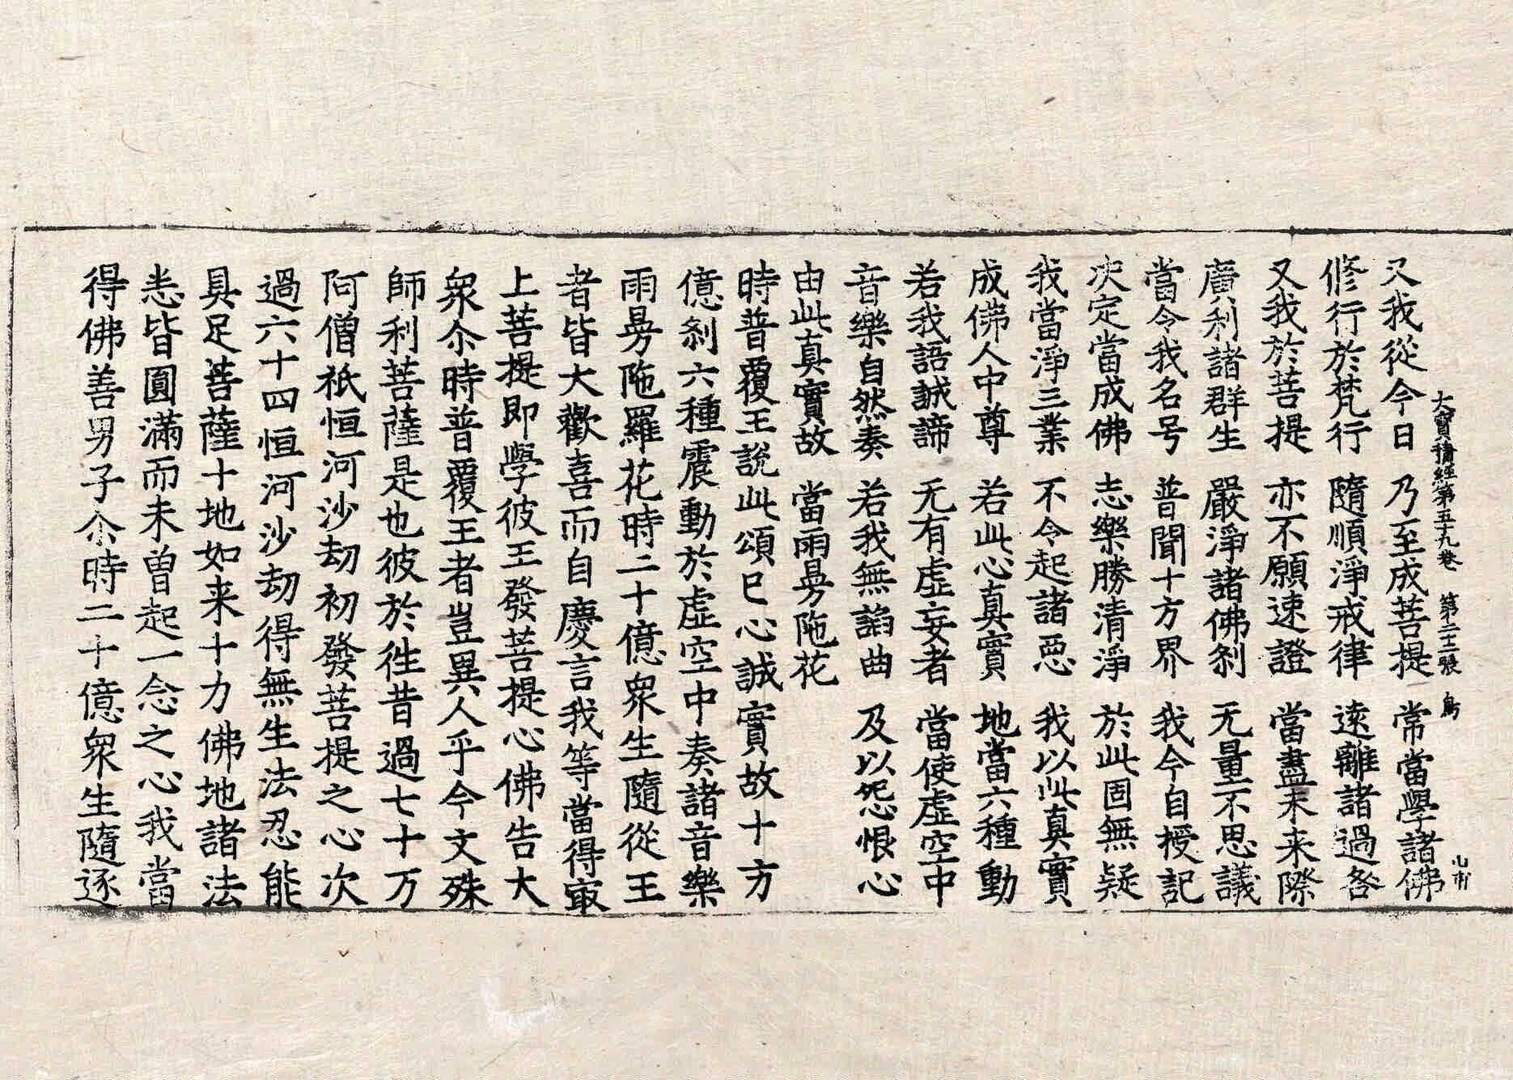 大寶積經第五十九卷　第二十二張　鳥
又我從今日　乃至成菩提　常當學諸佛
修行於梵行　隨順淨戒律　遠離諸過咎
又我於菩提　亦不願速證　當盡未来際
廣利諸群生　嚴淨諸佛刹　无量不思議
當令我名号　普聞十方界　我今自授記
决定當成佛　志樂勝清淨　於此固無疑
我當淨三業　不令起諸惡　我以此真實
成佛人中尊　若此心真實　地當六種動
若我語誠諦　无有虛妄者　當使虛空中
音樂自然奏　若我無謟曲　及以惌恨心
由此真實故　當雨曼陁花
時普覆王說此頌巳心誠實故十方
億刹六種震動於虛空中奏諸音樂
雨曼陁羅花時二十億衆生隨從王
者皆大歡喜而自慶言我等當得㝡
上菩提即學彼王發菩提心佛告大
衆尒時普覆王者豈異人乎今文殊
師利菩薩是也彼於徃昔過七十万
阿僧祇恒河沙劫初發菩提之心次
過六十四恒河沙劫得無生法忍能
具足菩薩十地如来十力佛地諸法
悉皆圓滿而未曾起一念之心我當
得佛善男子尒時二十億衆生隨逐